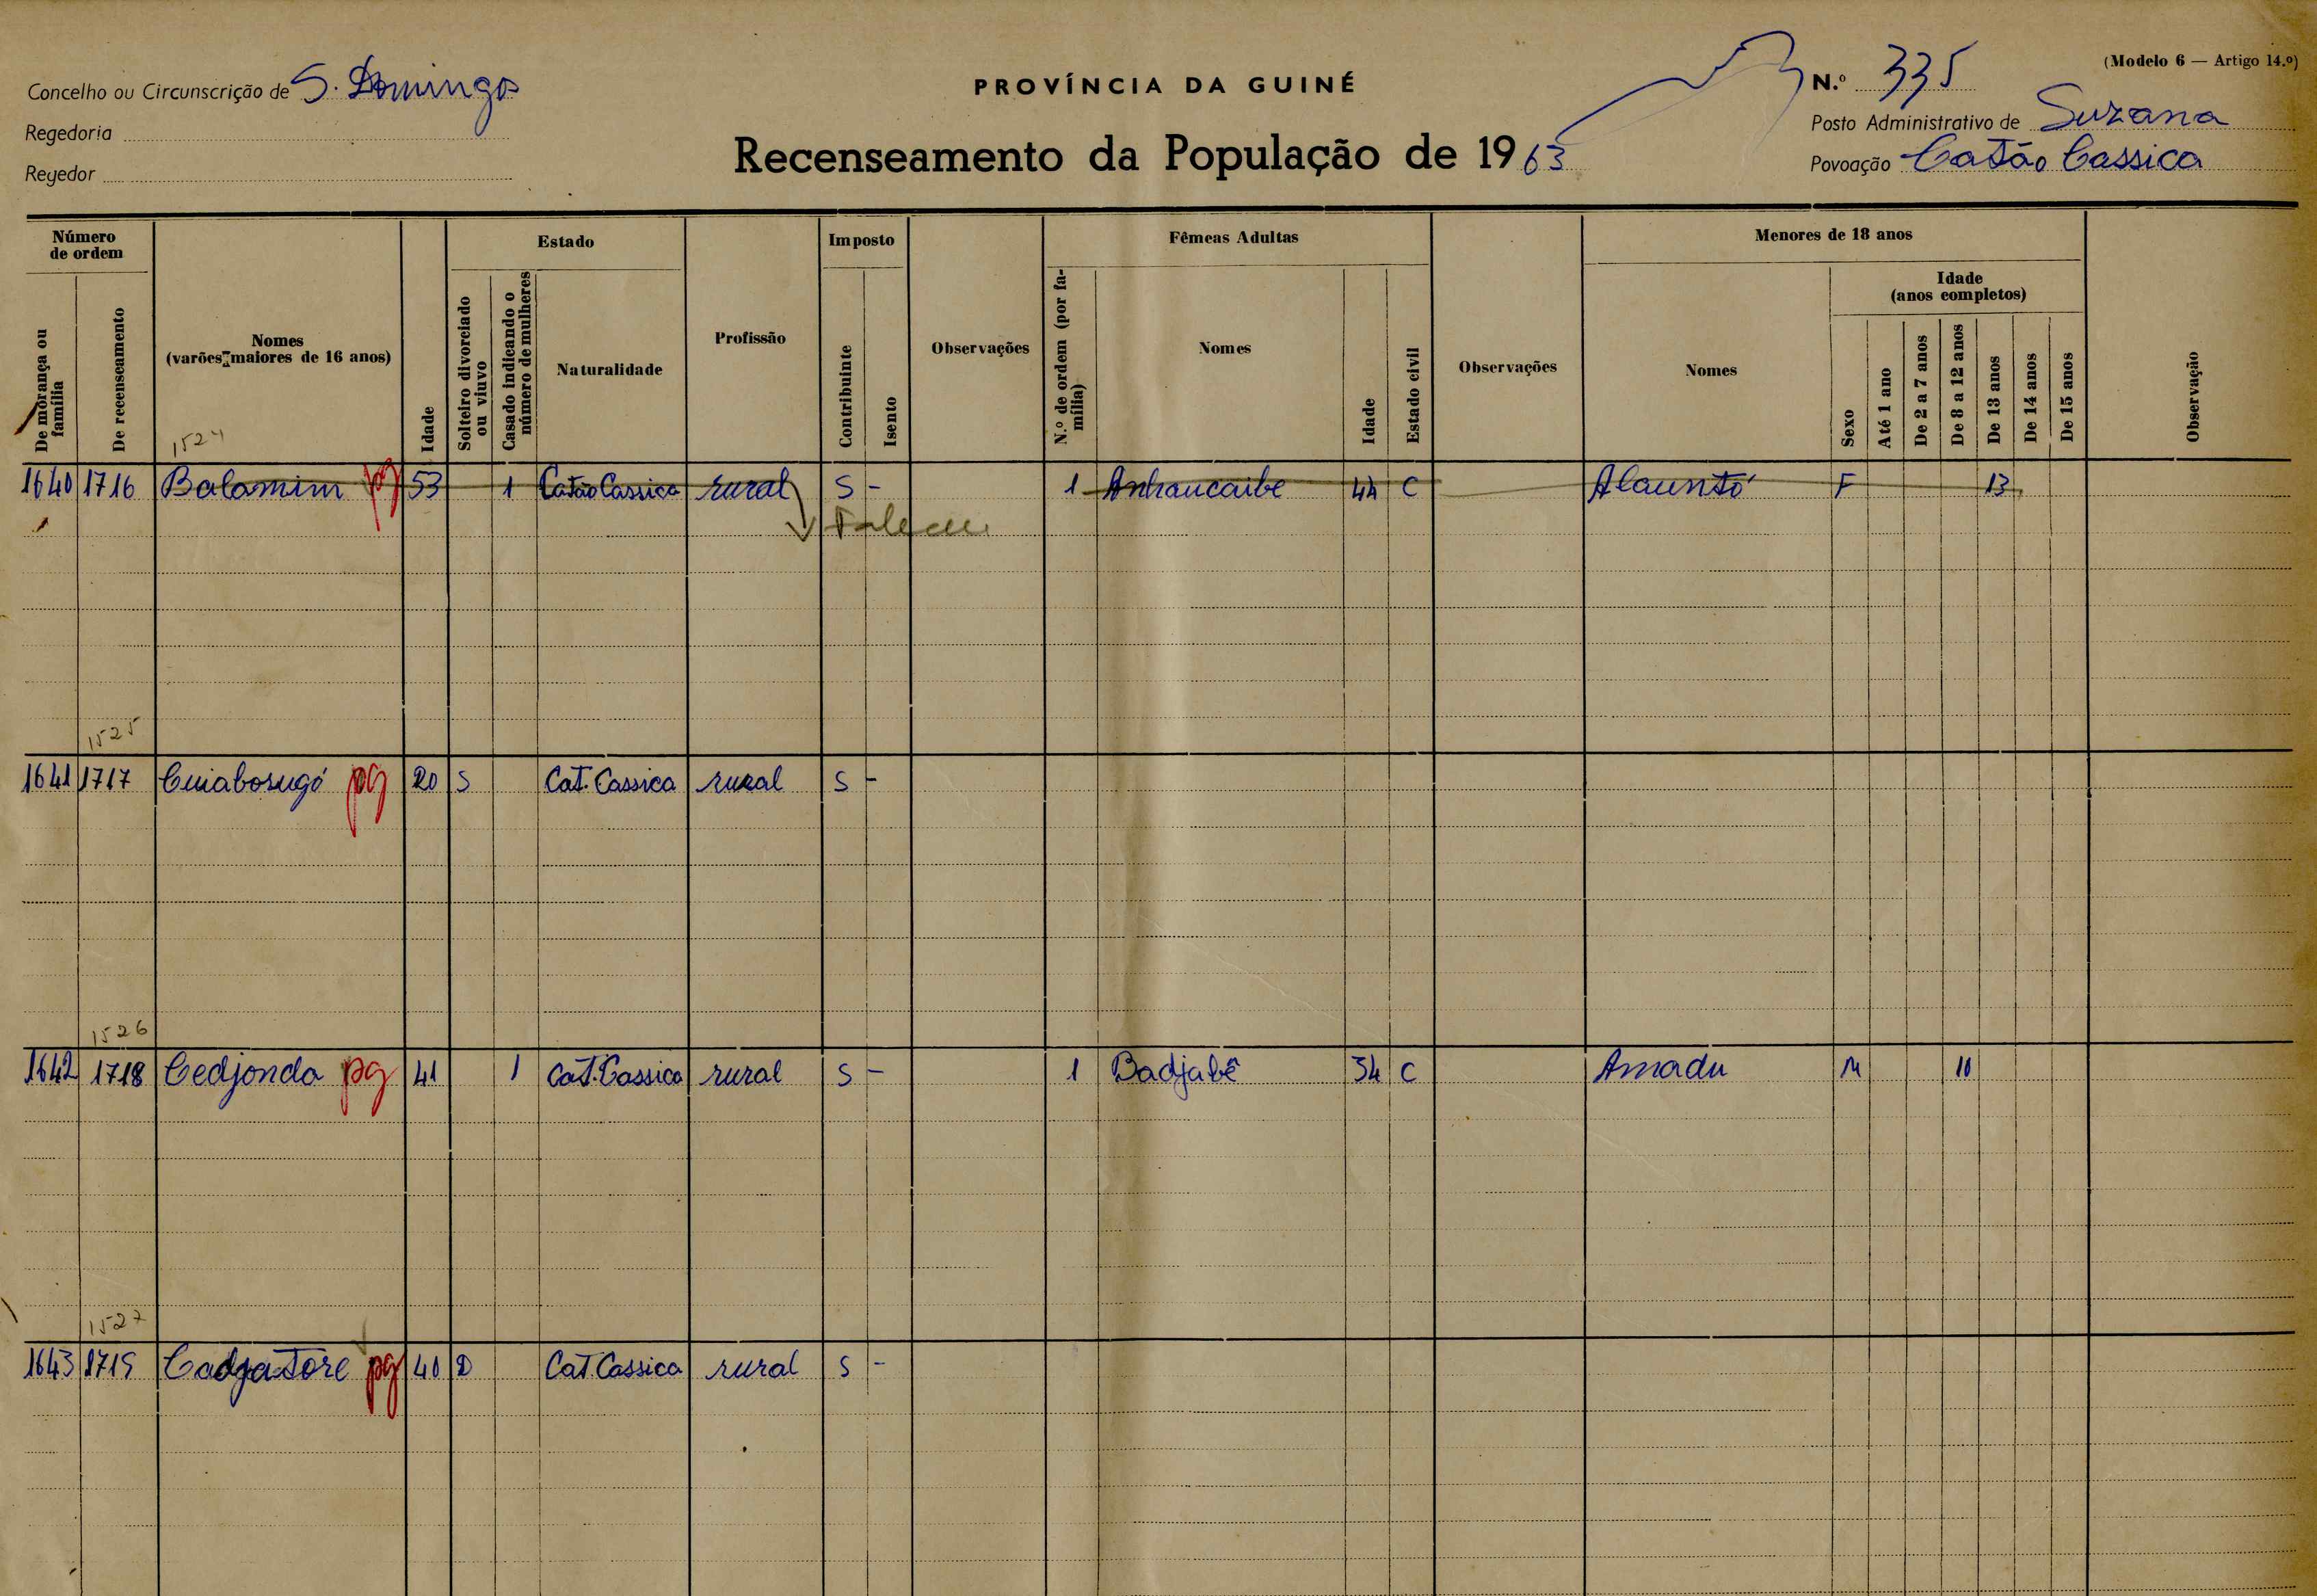 (Modelo 6 — Artigo 14.º)
Concelho ou Circunscrição de S. Domingos
PROVÍNCIA DA GUINÉ
N.º 335
Regedoria
Posto Administrativo de Suzana
Recenseamento da População de 1963
Regedor
Povoação Catão Cassica
Número de ordem
Estado
Imposto
Fêmeas Adultas
Menores de 18 anos
De morança ou família
De recenseamento
Nomes
(varões maiores de 16 anos)
Idade
Solteiro divorciado ou viuvo
Casado indicando o número de mulheres
Naturalidade
Profissão
Contribuinte
Isento
Observações
N.º de ordem (por família)
Nomes
Idade
Estado civil
Observações
Nomes
Idade
(anos completos)
Sexo
Até 1 ano
De 2 a 7 anos
De 8 a 12 anos
De 13 anos
De 14 anos
De 15 anos
Observação
1524
1640 1716 Balamim pg 53 1 Catão Cassica rural S - 1 Anhaucaibe 44 C Alaunto F 13
1525
1641 1717 Cuiabosugó pg 20 S Cat. Cassica rural S -
1526
1642 1718 Cedjonda pg 41 1 Cat. Cassica rural S - 1 Badjabê 34 C Amadu M 10
1527
1643 1719 Cadjatore pg 40 D Cat Cassica rural S -